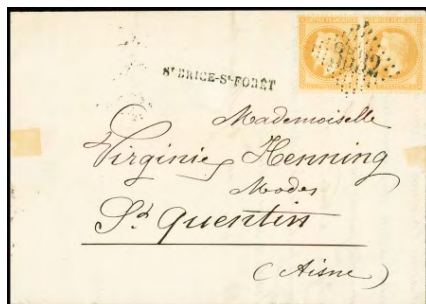 3532
ST BRICE-ST-FORÊT
Mademoiselle
Virginie Henning
Modes
St Quentin
(Aisne)